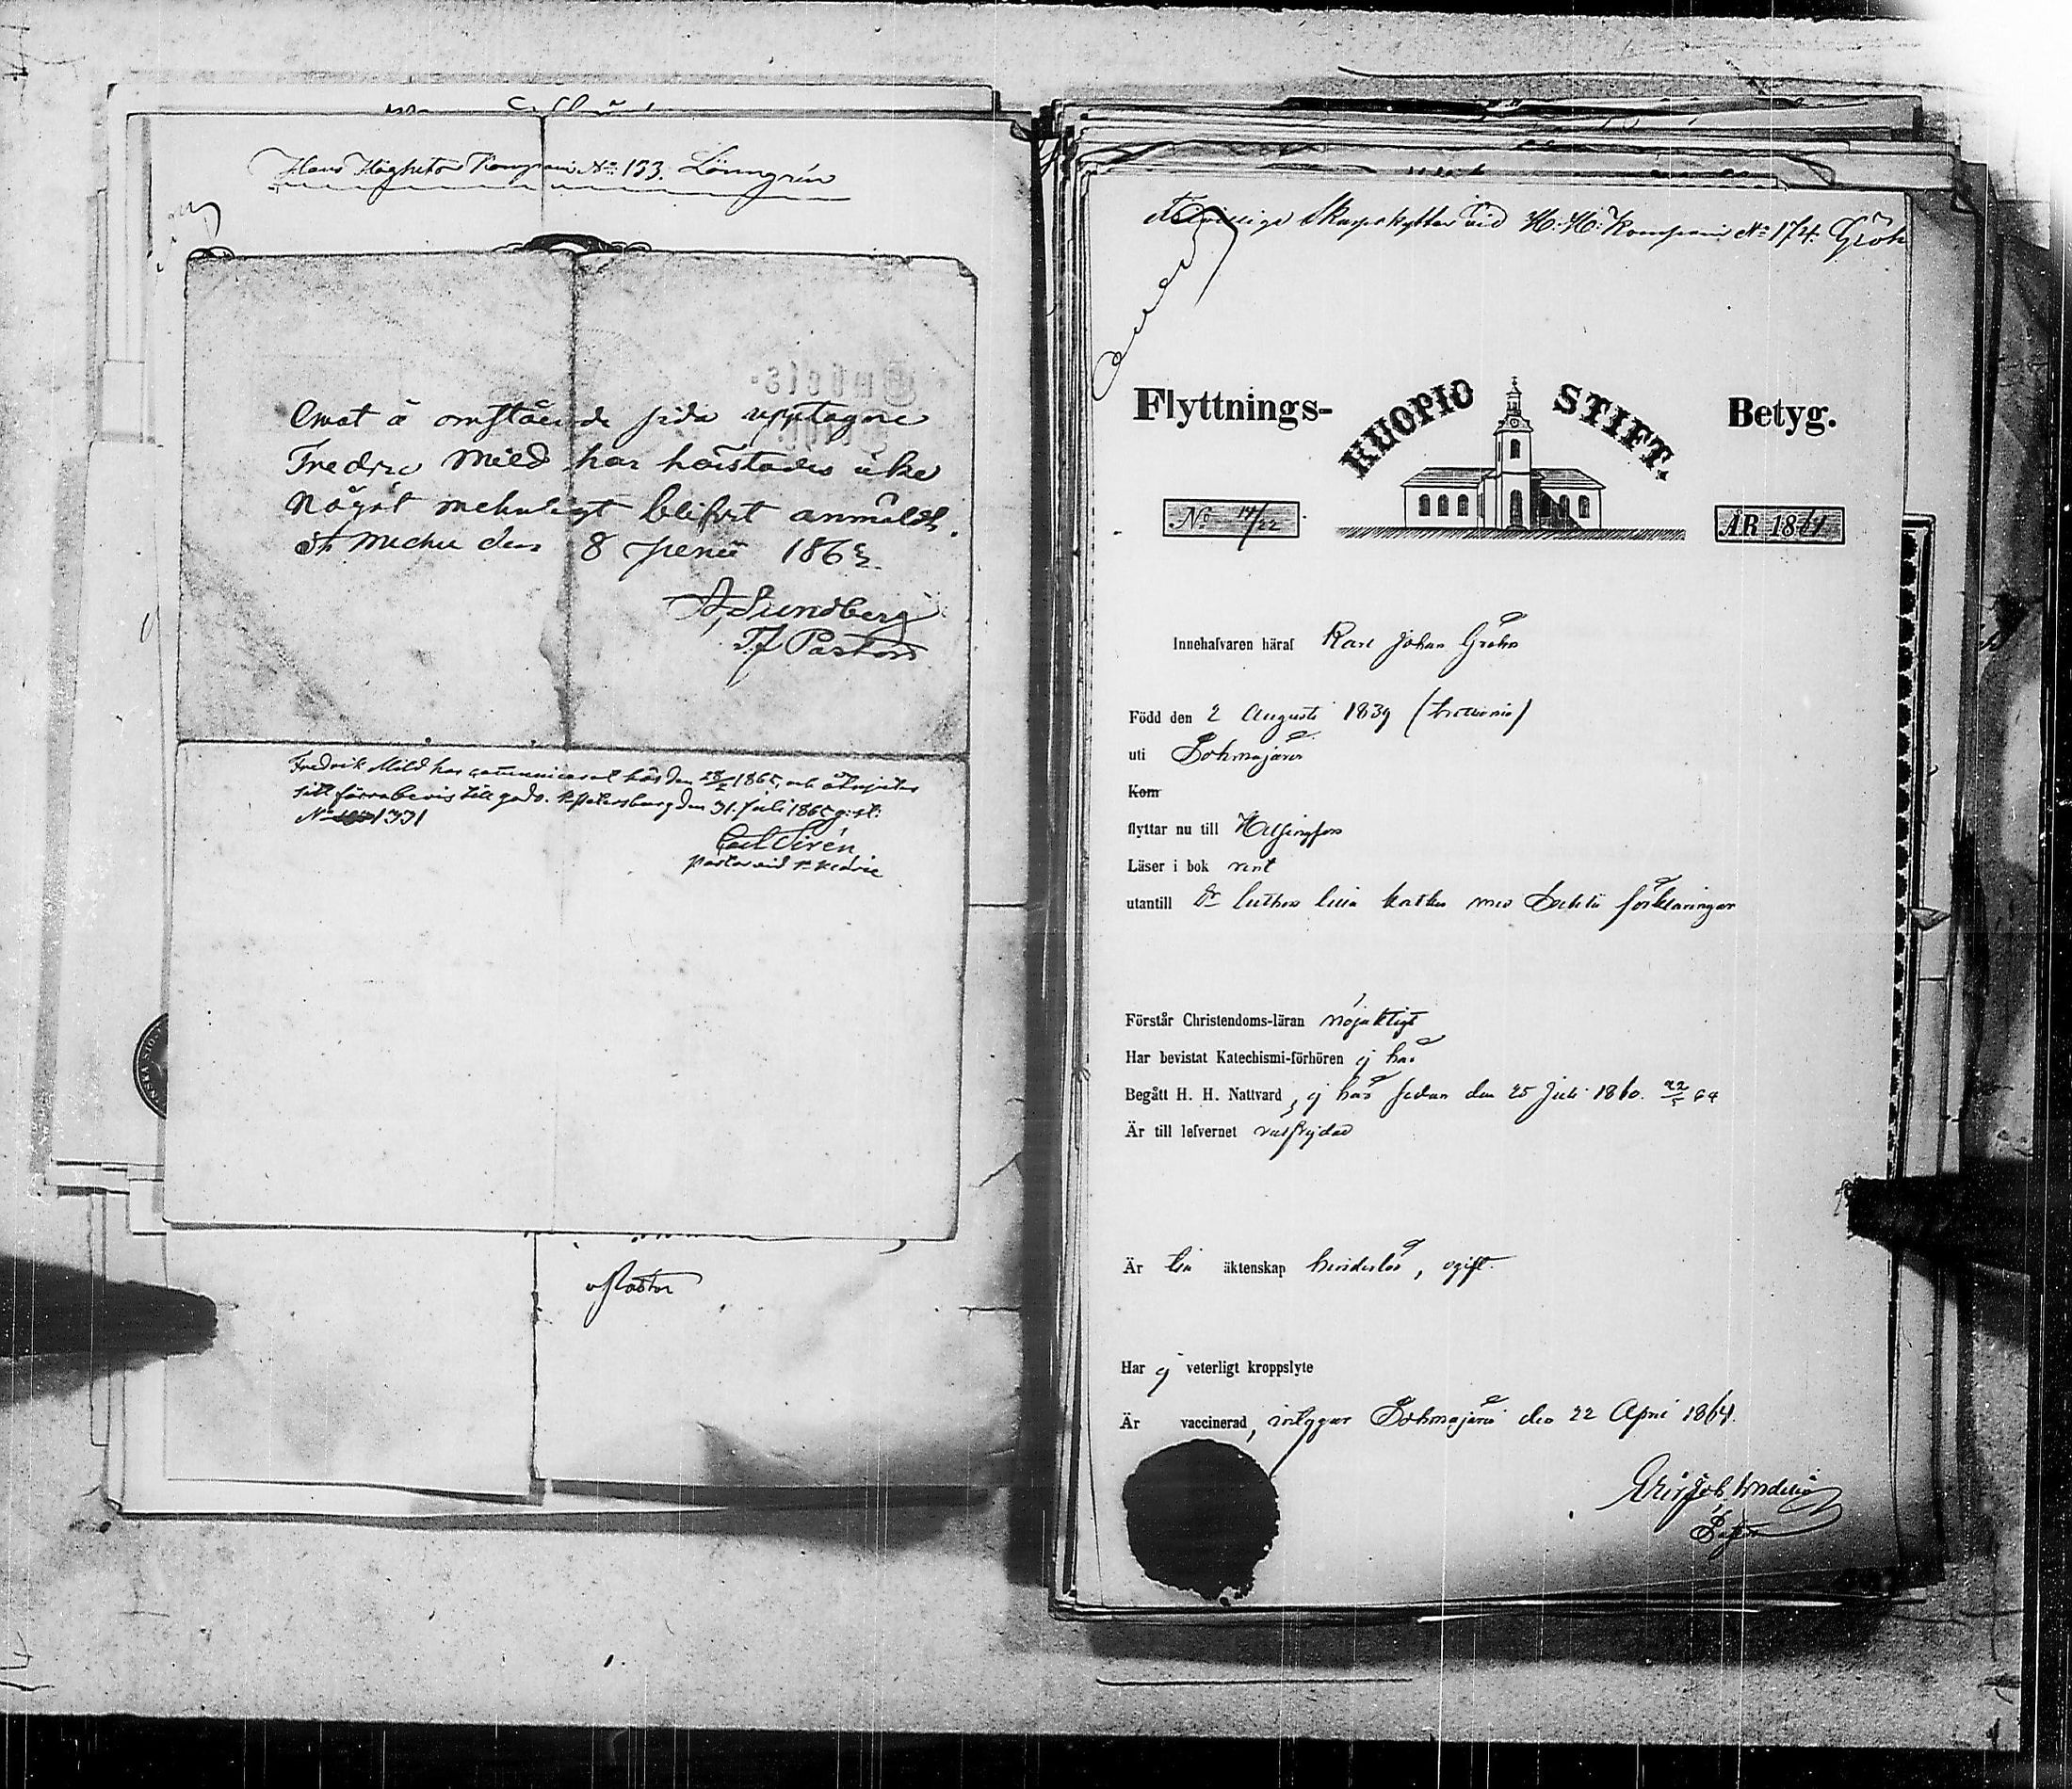 Hans Höghets Kompani No 153. Lönngrén
Emot å omstående sida upptagne
Fredric Mild har härstädes icke
något menligt blifvit anmäldt.
St Michel den 8 Junii 1865.
A, Sundberg
T.f Pastor
Fredrik Mild har communicerat här den 28/2 1865, och åtnjuter
sitt förra bevis till godo. St Petersburg den 31. Juli 1865 g: st:
No 1331
Carl Sirén
pastor vid
Pastor
Skarpskytten vid H: H: Kompani No 174. Gröh
Flyttnings- KUOPIO STIFT. Betyg.
No 14/22
ÅR 1864
Innehafvaren häraf Karl Johan Gröhn
Född den 2 Augusti 1839
uti Tohmajärvi
Kom
flyttar nu till Helsingfors
Läser i bok rent
utantill Dr Luthers lilla med förklaringar
Förstår Christendoms-läran nöjaktigt
Har bevistat Katechismi-förhören ej här
Begått H. H. Nattvard, ej här sedan den 25 Juli 1860. 22/5 64
Är till lefvernet välfrejdad
Är till äktenskap hinderlös, ogift.
Har ej veterligt kroppslyte
Är vaccinerad, intygar Tohmajärvi den 22 April 1864.